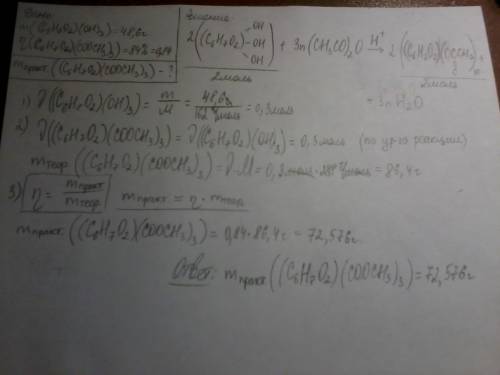 Дано:
m(C6H7O2)(OH)3 = 48,6г
η(C6H7O2)(COOCH3)3 = 84% = 0,84
mпракт. ((C6H7O2)(COOCH3)3) - ?
Решение:
2((C6H7O2) -OH -OH -OH) + 3n(CH3CO)2O H+→ 2((C6H7O2)(COCH3)3)n
2моль
2моль
+ 3nH2O
1) ν((C6H7O2)(OH)3) = m/M = 48,6г/162 г/моль = 0,3моль
2) ν((C6H7O2)(COOCH3)3) = ν((C6H7O2)(OH)3) = 0,3моль (по ур-ю реакции)
mтеор ((C6H7O2)(COOCH3)3) = ν·M = 0,3моль · 288г/моль = 86,4г
3) η = mпракт/mтеор mпракт. = η · mтеор
mпракт. ((C6H7O2)(COOCH3)3) = 0,84 · 86,4г = 72,576г.
Ответ: mпракт ((C6H7O2)(COOCH3)3) = 72,576г